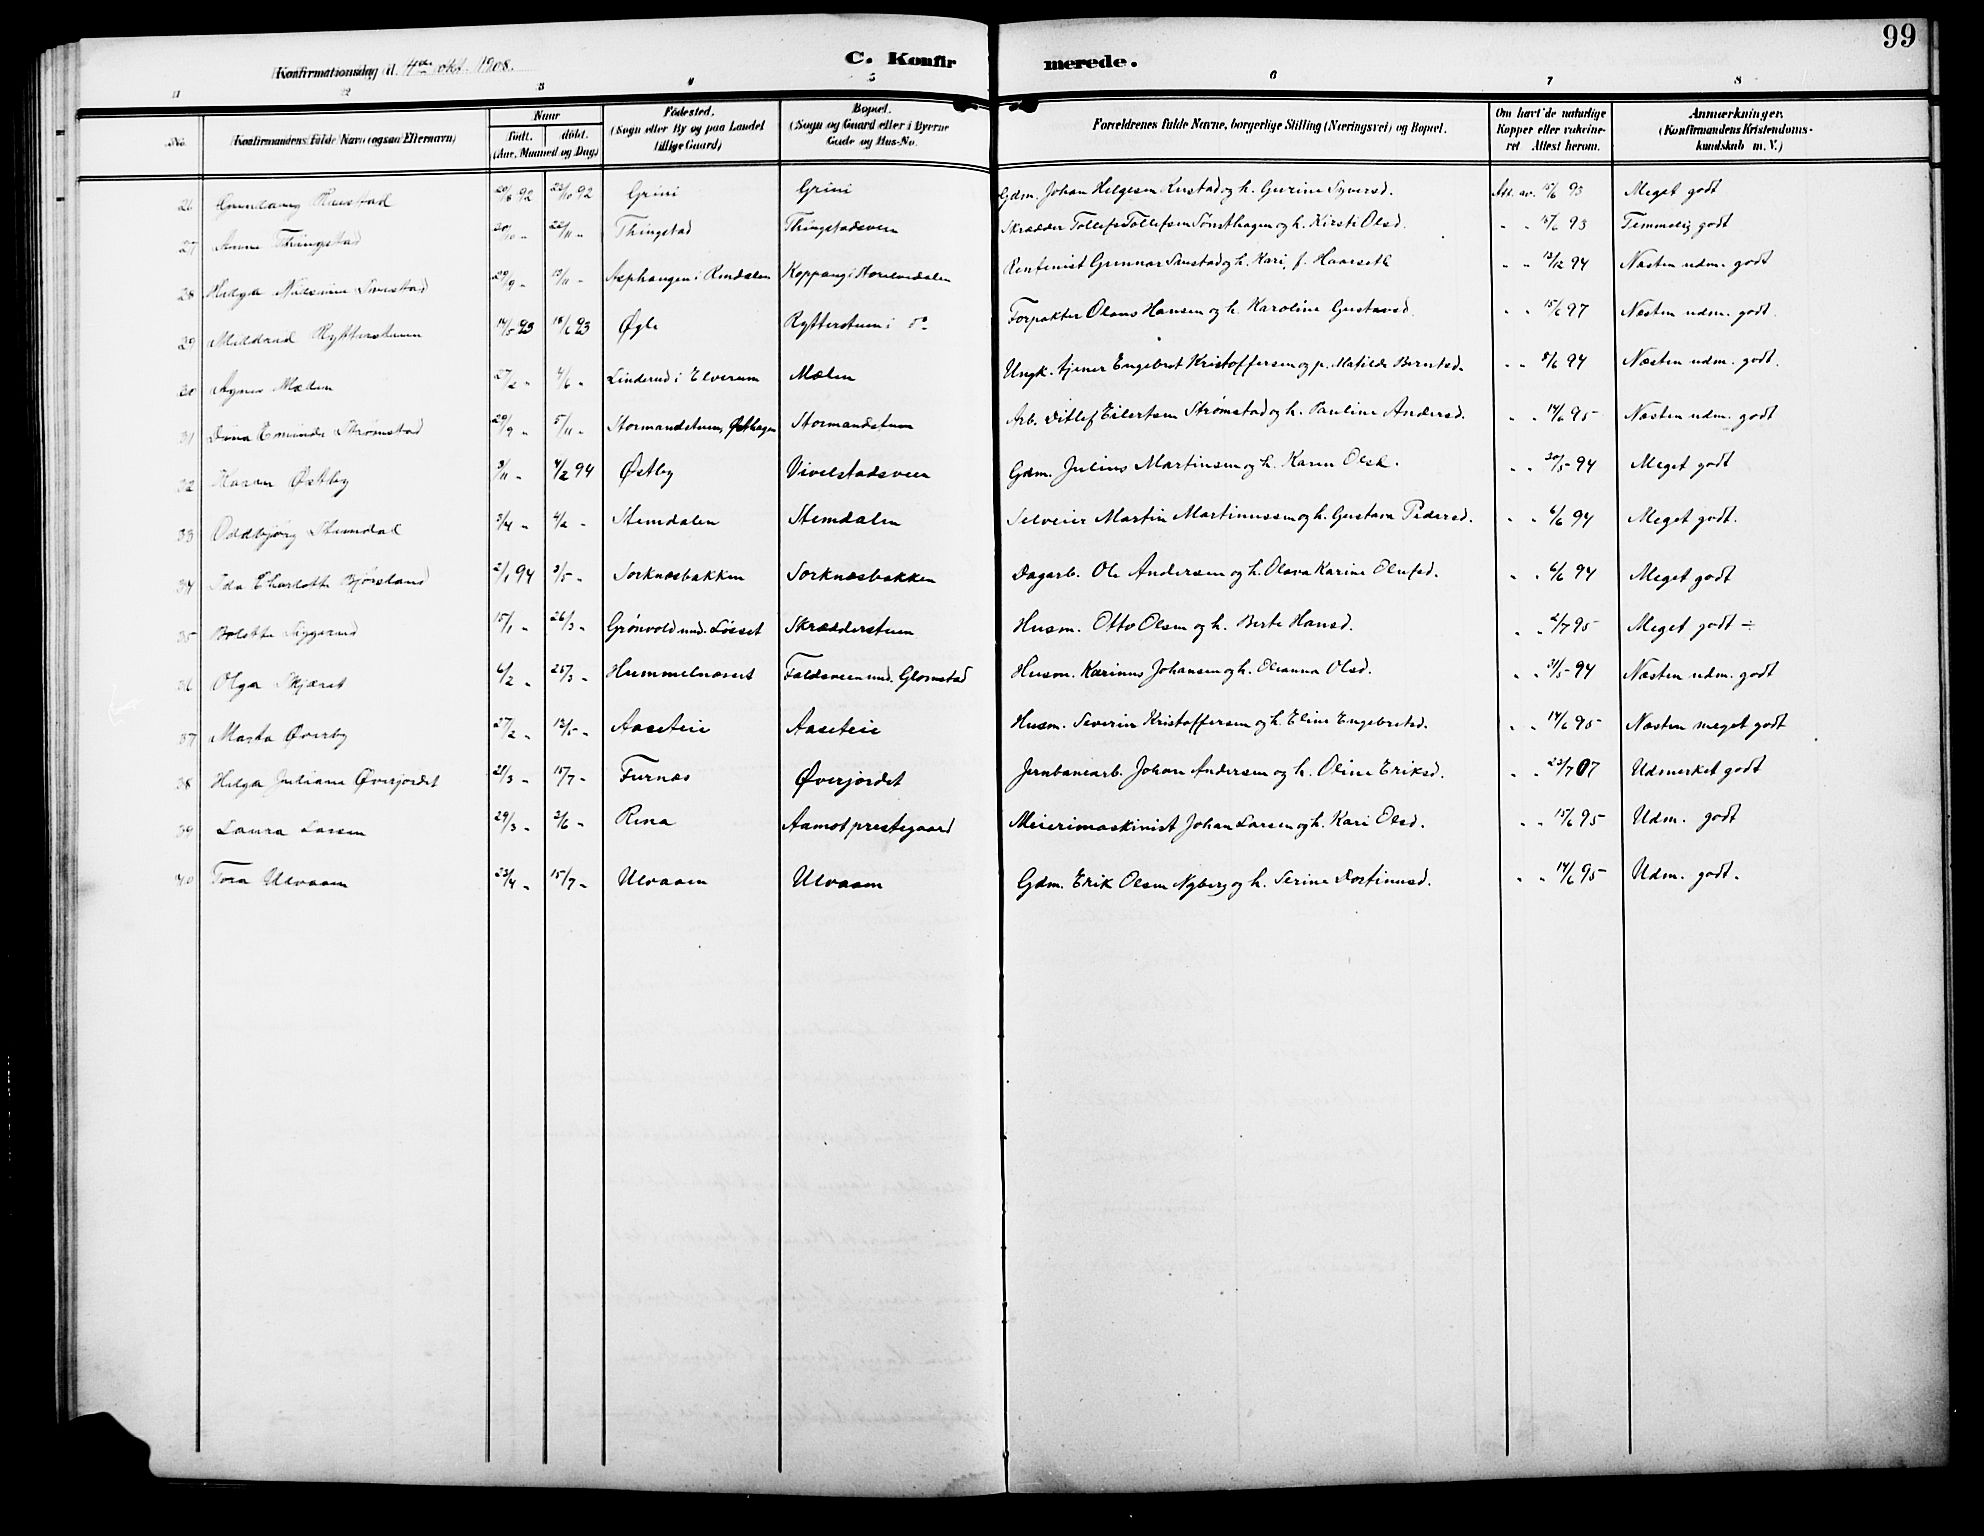 99
Konfirmationsdag d. 4de okt. 1908.
C. Konfirmerede.
1 2 3 4 5 6 7 8
No. Konfirmandens fulde Navn (ogsaa Efternavn) Naar født. døbt. (Aar, Maaned og Dag) Fødested. (Sogn eller By og paa Landet tillige Gaard) Bopæl. (Sogn og Gaard eller i Byerne Gade og Hus-No. Forældrenes fulde Navne, borgerlige Stilling (Næringsvei) og Bopæl. Om havt de naturlige Kopper eller vakcineret Attest herom. Anmærkninger. (Konfirmandens Kristendomskundskab m. V.)
26 Gunlaug 20/8 92 23/10 92 Grini Grini Gdm. Johan Helgesen og h. Gurine Syversd. Att. av. 15/6 93 Meget godt
27 Anne Thingstad 20/10 " 22/11 " Thingstad Thingstadsveen Skrædder Tollef Tollefsen Sønsthagen og h. Kirsti Olsd. " " 15/6 93 Temmelig godt
28 Helga Nilsine 29/9 " 19/11 " i Rendalen Koppang i Storelvedalen Rentenist Gunnar og h. Kari, f. Haarseth " " 13/12 94 Næsten udm. godt
29 Mildrid Rytterstuen 14/5 93 18/6 93 Øgle Rytterstuen i do Forpakter Olaus Hansen og h. Karoline Gustavsd. " " 15/6 97 Næsten udm. godt.
30 Agnes Mælen 27/2 " 4/6 " Linderud i Elverum Mælen Ungk. tjener Engebret Kristoffersen og p. Matilde Berntsd. " " 8/6 94 Næsten udm. godt.
31 Dina Strømstad 29/9 " 5/11 " Stormandstuen, Østhagen Stormandstuen Arb. Ditlef Eilertsen Strømstad og h. Pauline Andersd. " " 14/6 95 Næsten udm. godt
32 Karen Østby 3/11 " 4/2 94 Østby Vivelstadsveen Gdm. Julius Martinsen og h. Karen Olsd. " " 30/5 94 Meget godt
33 Oddbjørg Stemdal 3/4 " 4/2 " Stemdalen Stemdalen Selveier Martin Martinussen og h. Gustava Pedersd. " " 6/6 94 Meget godt.
34 Ida Charlotte Bjørsland 2/1 94 3/5 " Sorknæsbakken Sorknæsbakken Dagarb. Ole Andersen og h. Olava Karine Olufsd. " " 6/6 94 Meget godt
35 Bolette Siggerud 15/1 " 26/3 " Grönvold und. Løsset Skrædderstuen Husm. Otto Olsen og h. Berte Hansd. " " 2/7 95 Meget godt ÷
36 Olga Skjæret 6/2 " 25/3 " Hummelnæset Faldsveen und. Glomstad Husm. Karinus Johansen og h. Oleanna Olsd. " " 31/5 94 Næsten udm. godt
37 Marta Øverby 27/2 " 13/5 " Aaseteie Aaseteie Husm. Severin Kristoffersen og h. Eline Engebretsd. " " 14/6 95 Næsten meget godt
38 Helga Juliane Øverjordet 21/3 " 15/7 " Furnæs Øverjordet Jernbanearb. Johan Andersen og h. Oline Eriksd. " " 23/7 07 Udmerket godt
39 Laura Larsen 29/3 " 3/6 " Rena Aamot prestegaard Meierimaskinist Johan Larsen og h. Kari Olsd. " " 15/6 95 Udm. godt
40 Tora Ulvaaen 23/4 " 15/7 " Ulvaaen Ulvaaen Gdm. Erik Olsen Nyberg og h. Serine Dortinusd. " " 14/6 95 Udm. godt.